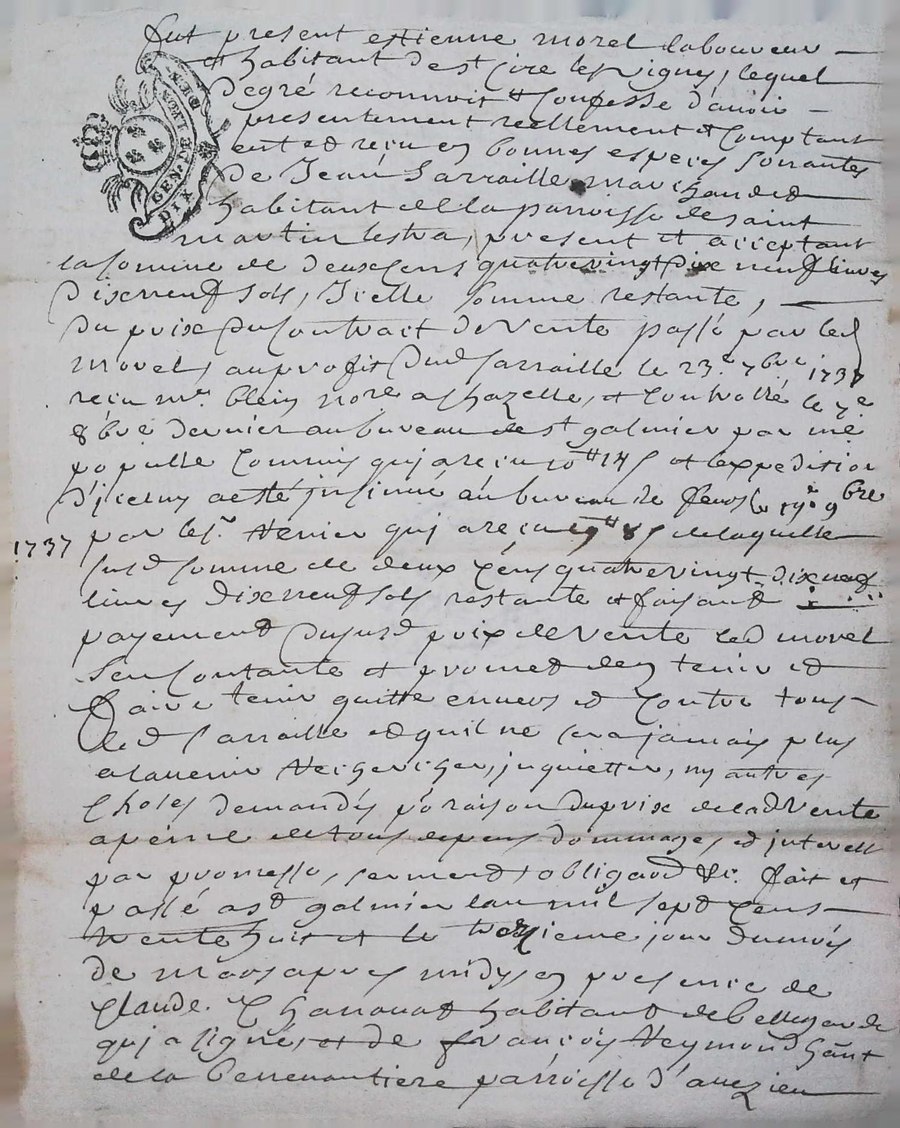 fut present estienne morel laboureur
et habitant de st Cire les Vignes, lequel
de gré reconnoit et Confesse d'avoir
presentement reellement et Comptant
eut et reçu en bonnes especes sonantes
GEN. DE
DIX
DEN.
de Jean Sarraille marchand et
habitant de la parroisse de saint
martin lestra, present et acceptant
la somme de deux cens quatrevingt dix neuf livres
Dixneuf sols, Icelle somme restante,
du prix du Contract de Vente passé par led
morel, au profit dud Sarraille le 23.e 7bre 1737
reçu me. blein nore a Chazelle, et Controllé le 7.e
8bre dernier au bureau de st galmier par me
populle Commis qui a reçu 10tt 14s et lexpedition
d'icelui a esté insinué au bureau de feurs le 19.e 9bre
1737 par le sr. Venier qui a reçu 19tt 8s de laquelle
susd somme de deux Cens quatrevingt dixneuf
livres Dixneuf sols restante et faisant
payement dusurd prix de Vente led morel
sen Contante et promet den tenir et
faire tenir quitte envers et Contre tous
led Sarraille et quil ne sera jamais plus
a lavenir Rechercher, inquietter, ny autres
Choses demandés po raison du prix de lad Vente
a peine de tous depens dommages et interest
par promesse, serment obligaon &c. fait et
passé a sd galmier lan mil sept Cens
trente huit et le treizieme jour du mois
de mars apres midy en presence de
Claude. Chanouat habitant de bellegarde
qui a signé, et de françois Reymond hant
de la parroisse d'auezieu